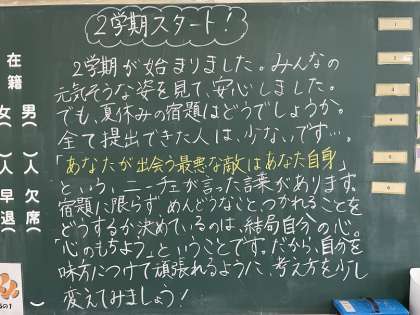 2学期スタート!
2学期が始まりました。みんなの
元気そうな姿を見て、安心しました。
でも、夏休みの宿題はどうでしょうか。
全て提出できた人は、少ないです…。
「あなたが出会う最悪な敵はあなた自身」
という、ニーチェが言った言葉があります。
宿題に限らずめんどうなこと、つかれることを
どうするか決めているのは、結局自分の心。
「心のもちよう」ということです。だから、自分を
味方につけて頑張れるように、考え方を少し
変えてみましょう!
在籍 男( )人 欠席( )
女( )人 早退